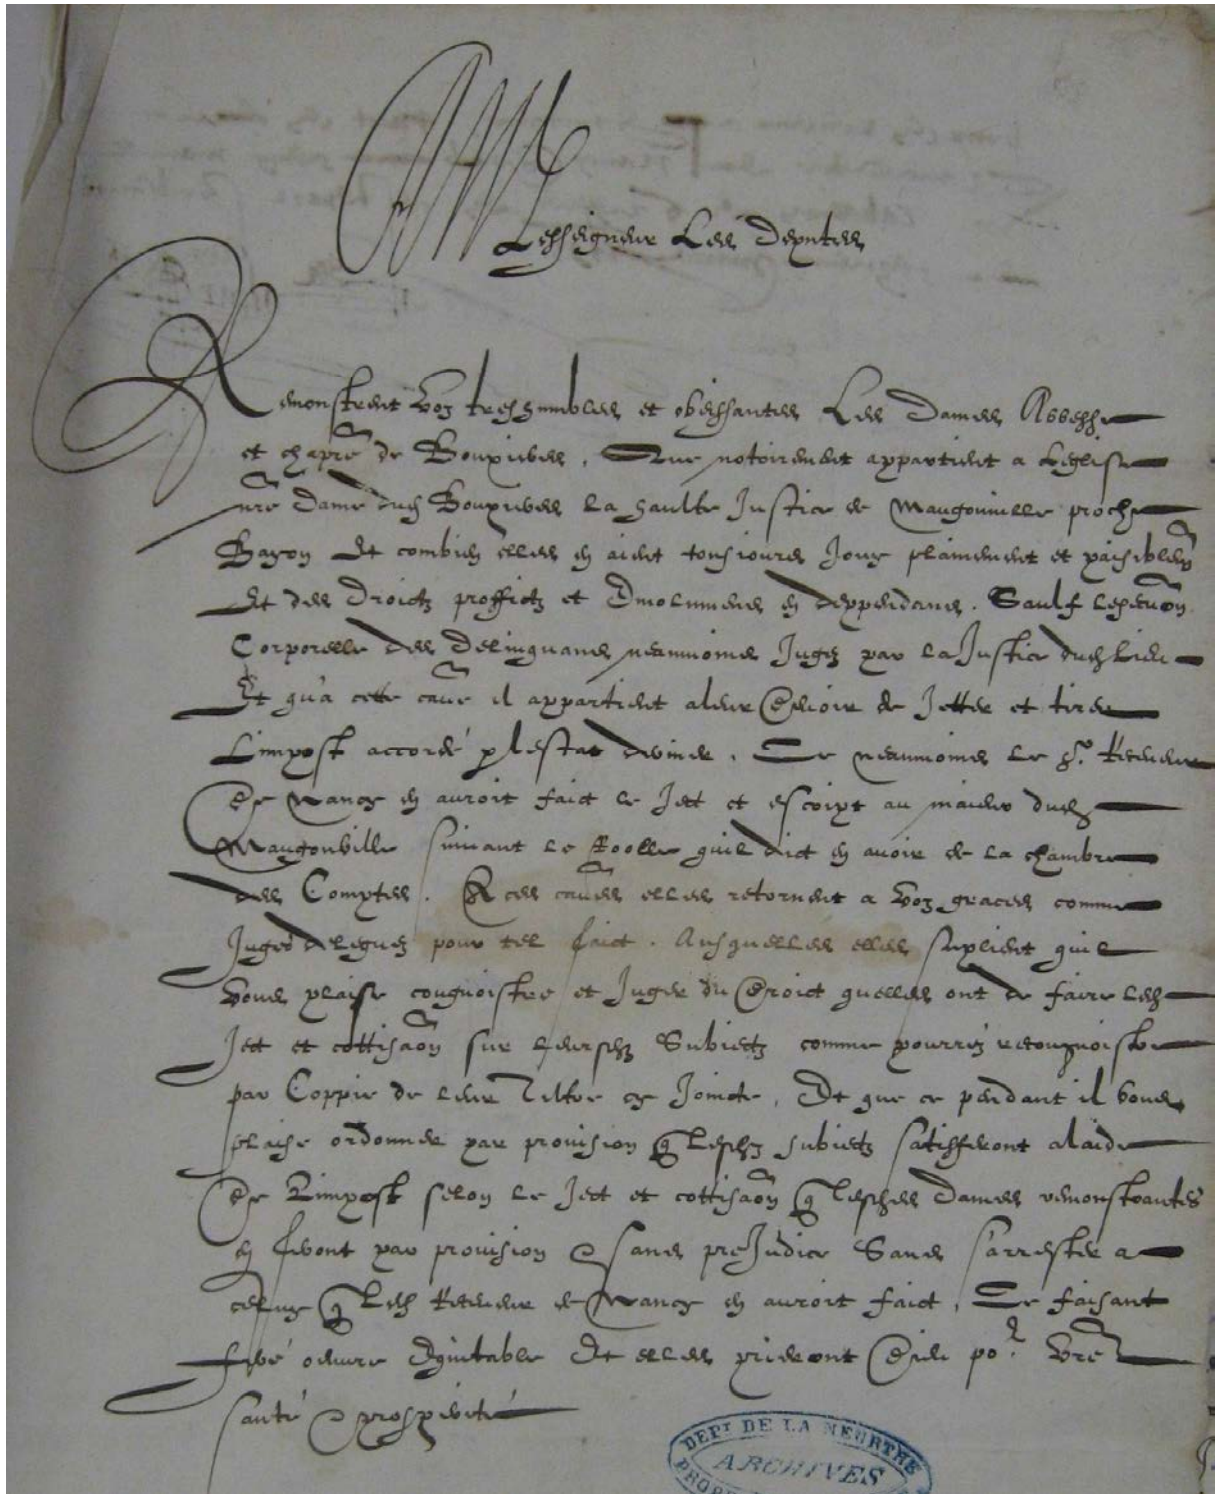 A Messeigneurs Les deputees
Remonstrent voz treshumbles et obeissantes Les dames Abbesse
et chapre de Bouxieres, Que notoirement appartient a Leglise
nre dame dud Bouxieres la haulte Justice de Maugonville proche
Bayon Et combien quelles en aient tousjours Jouy plainement et paisiblemt
Et des droictz proffictz et Emolumens en deppendans. Saulf lexecuon
Corporelle des delinquans neanmoins Jugez par la Justice dud Lieu
Et qua cette cause il appartient a leur de Jetter et tirer
Limpost accordé p lestat. Ce neanmoins le sr. Receveur
de Nancy en auroit faict le Ject et escript au maieur dud
Maugonville suivant le Roolle quil dict en avoir de la chambre
des Comptes. A ces causes elles retornent a voz graces comme
Juges deleguez pour tel faict. Ausquelles elles suplient quil
vous plaise congnoistre et Juger du droict quelles ont de faire led
Ject et cottisaon sur leursd Subiectz comme pourrez recongnoistre
par Coppie de leur Tiltre cy Joincte, Et que ce pendant il vous
plaise ordonner par provision q lesd subiectz satisfferont a laide
de Limpost selon le Ject et cottisaon q lesd dames remonstrantes
en feront par provision & sans preJudice Sans sarrester a
celuy q led Receveur de Nancy en auroit faict, Ce faisant
feré oeuvre Equitable Et elles prieront Dieu por vre
santé & prosperité
DEPT DE LA MEURTHE
ARCHIVES